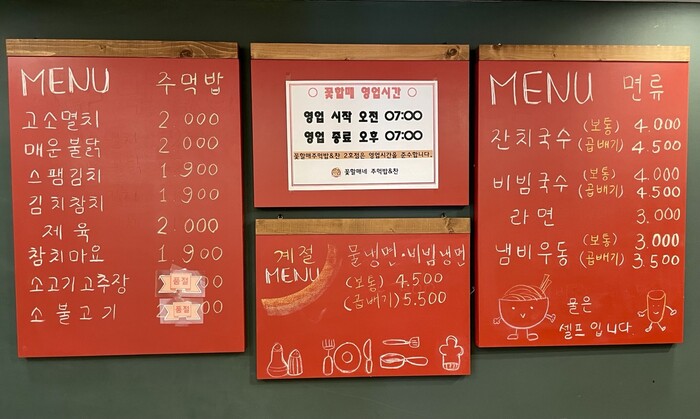 MENU 주먹밥
고소멸치 2 000
매운불닭 2.000
스팸김치 1.900
김치참치 1.900
제육 2.000
참치마요 1.900
소고기고추장 품절 00
소불고기 2 품절 00
꽃할매 영업시간
영업 시작 오전 07:00
영업 종료 오후 07:00
꽃할매주먹밥&찬 2호점은 영업시간을 준수합니다.
꽃할매네 주먹밥&찬
계절 MENU
물냉면·비빔냉면
(보통) 4.500
(곱배기) 5.500
MENU 면류
잔치국수 (보통) 4.000
(곱배기) 4.500
비빔국수 (보통) 4.000
(곱배기) 4.500
라면 3.000
냄비우동 (보통) 3.000
(곱배기) 3.500
물은
셀프입니다